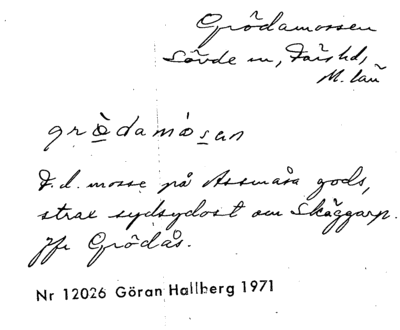 Grödamossen
Sövde sn, Färs hd,
M. län
grödamosan
F.d. mosse på Assmåsa gods,
strax sydsydost om Skåggarp.
Jfr Grödås.
Nr 12026 Göran Hallberg 1971